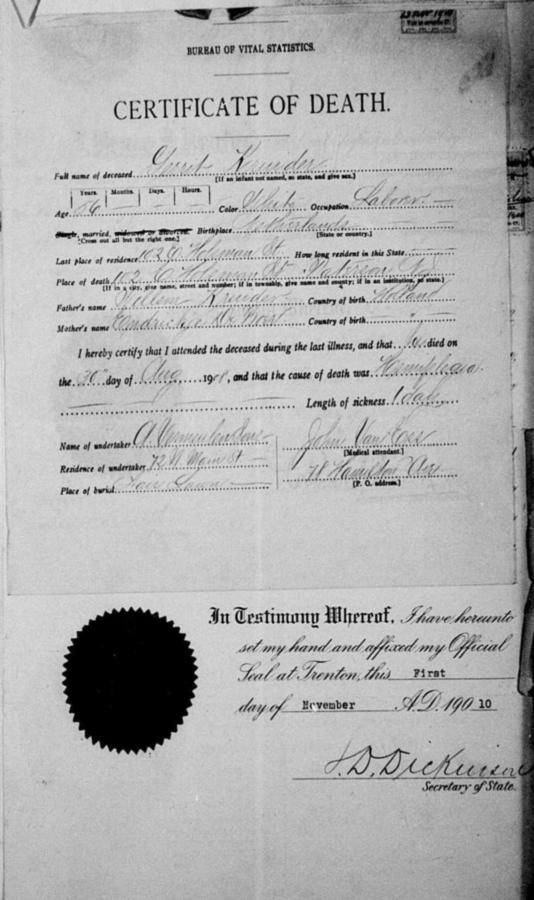 BUREAU OF VITAL STATISTICS.
CERTIFICATE OF DEATH.
Full name of deceased Gerrit Kruider
[If an infant not named, so state, and give sex.]
Years. Months. Days. Hours.
Age 56 Color White Occupation Laborer
Single, married, widowed or divorced. Birthplace Netherlands
[Cross out all but the right one.] [State or country.]
Last place of residence 102 E Holsman St How long resident in this State
Place of death 102 E Holsman St Paterson NJ
[If in a city, give name, street and number; if in township, give name and county; if in an institution, so state.]
Father's name Willem Kruider Country of birth Holland
Mother's name Country of birth "
I hereby certify that I attended the deceased during the last illness, and that he died on
the 30" day of Aug 190, and that the cause of death was Hemiplegia
Length of sickness 1 day
Name of undertaker A Vermeulen Sons John Van
[Medical attendant.]
Residence of undertaker 72 N Main St 78 Hamilton Ave
[P. O. address.]
Place of burial Fair Lawn
In Testimony Whereof, I have hereunto
set my hand and affixed my Official
Seal at Trenton, this First
day of November A.D. 190 10
S.D. Dickinson
Secretary of State.